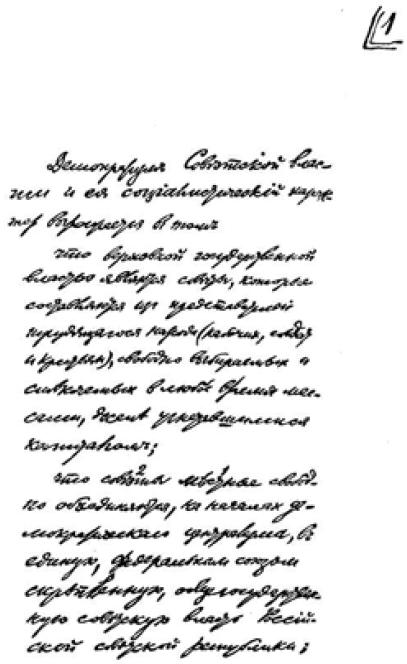 1
Демократизм Совѣтской влас-
ти и ея социалистический харак-
тер выражается в том
что верховной государственной
властью являются совѣты, которые
составляются из представителей
трудящагося народа (рабочих, солдат
и крестьян), свободно выбираемых и
смѣняемых в любое время мас-
сами, доселѣ угнетавшимися
капиталом;
что совѣты мѣстные свобод-
но объединяются, на началах де-
мократическаго централизма, в
единую, федеральным союзом
скрѣпленную, общегосударствен-
ную совѣтскую власть Россій-
ской совѣтской республики;